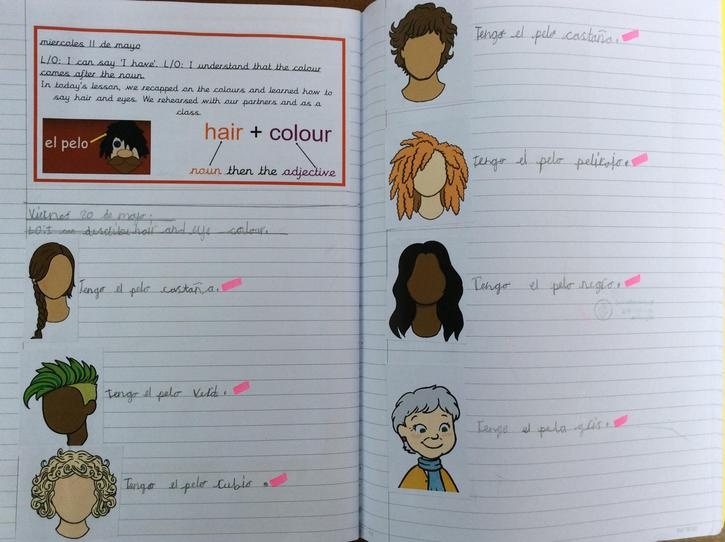 miercoles 11 de mayo
L/O: I can say 'I have'. L/O: I understand that the colour
comes after the noun.
In today's lesson, we recapped on the colours and learned how to
say hair and eyes. We rehearsed with our partners and as a
class.
el pelo
hair + colour
noun then the adjective
Viernes 20 de mayo.
LO: I can describe hair and eye colour.
Tengo el pelo castaña.
tengo el pelo Verde.
Tengo el pelo rubio.
Tengo el pelo castaña.
tengo el pelo pelirojo.
Tengo el pelo negro.
Tengo el pelo gris.